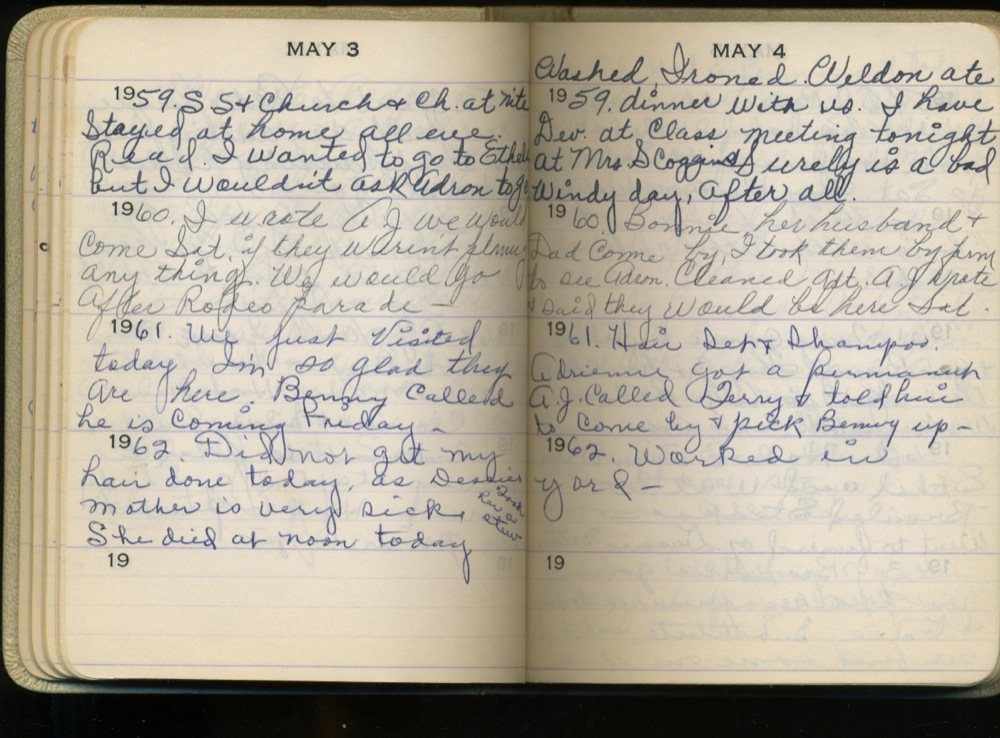 MAY 3
1959. S S & Church & Ch. at nite
Stayed at home all eve.
Read. I wanted to go to Ethel
but I wouldn't ask Adron to go
1960. I wrote A J we would
come Sat. if they weren't
any thing. We would go
After Rodeo parade –
1961. We just Visited
today I'm so glad they
are here. Benny Called
he is Coming Friday –
1962 Did not get my
hair done today, as
mother is very sick,
Took her a stew
She died at noon today
19
MAY 4
Washed, Ironed, Weldon ate
1959. dinner with us. I have
Dev. at Class meeting tonight
at Mrs S Coggins Surely is a bad
windy day, after all.
1960. Bonnie, her husband &
Dad Come by, I took them by farm
to see Adron. Cleaned apt. A J wrote
& said they would be here Sat.
1961. Hair Set & Shampoo.
Adrienne got a permanent
A.J. Called Jerry & told him
to Come by & pick Benny up –
1962. Worked in
yard –
19